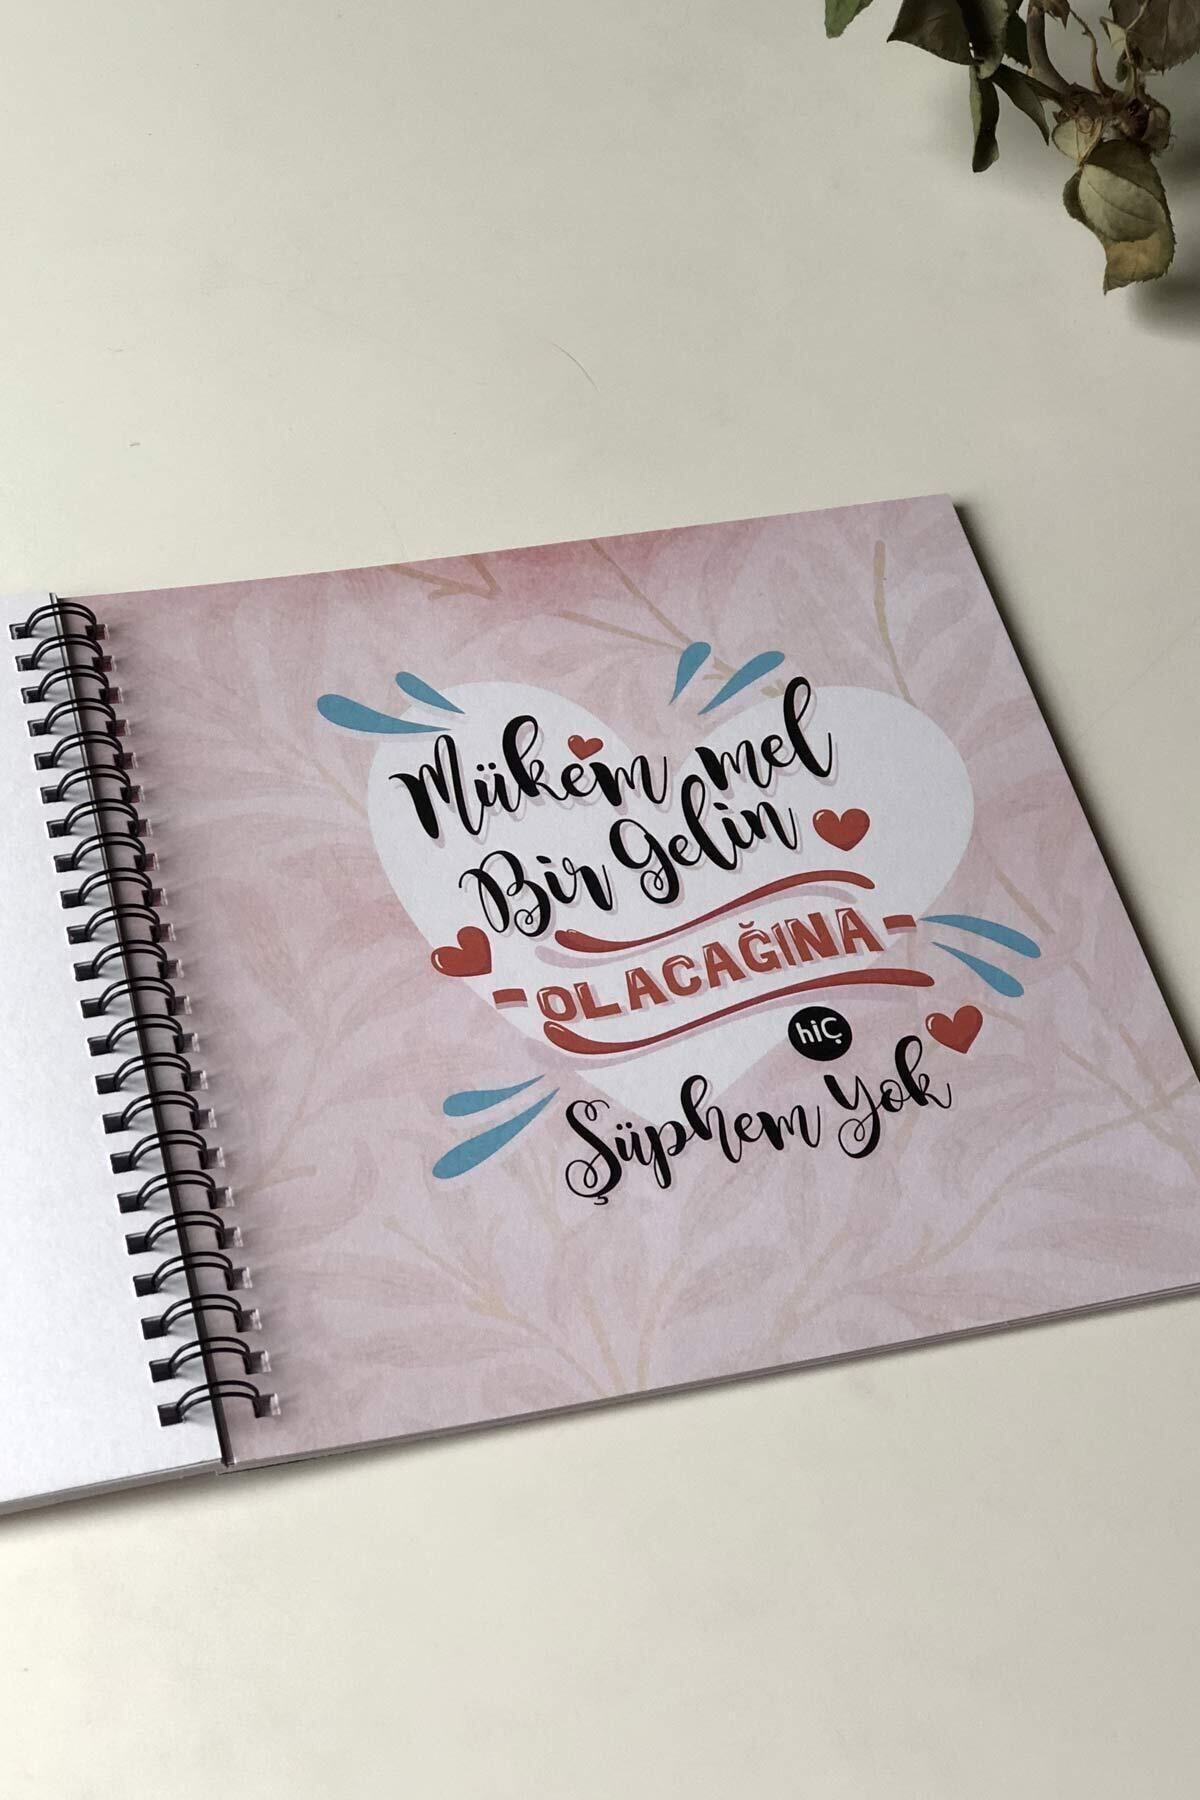 Mükemmel
Bir Gelin
-OLACAĞINA-
hiÇ
Şüphem Yok